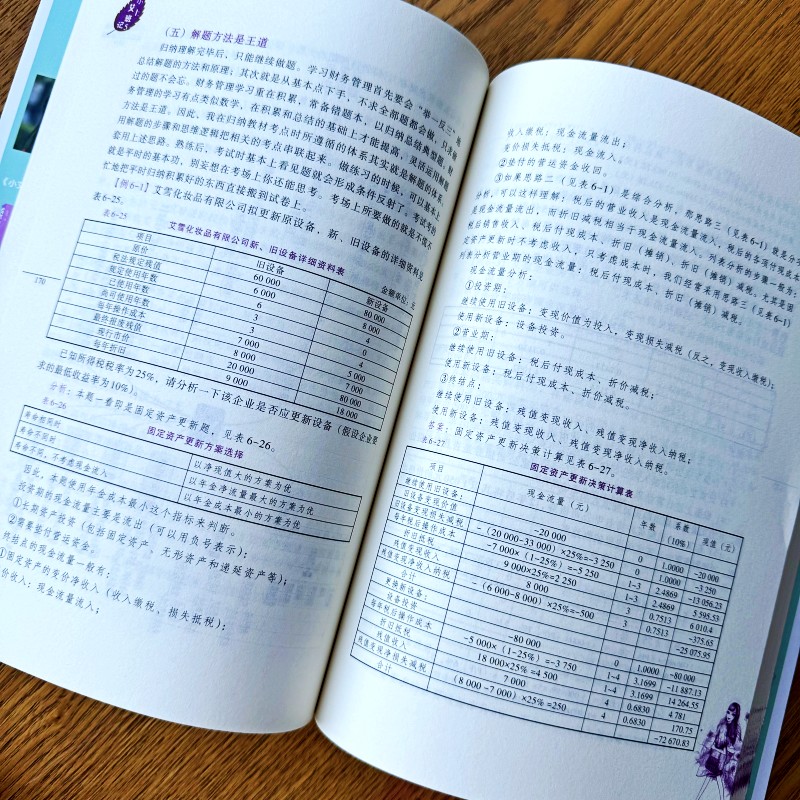 (五) 解题方法是王道
归纳理解完毕后，只能继续做题。学习财务管理首先要会“举一反三”，
总结解题的方法和原理；其次就是从基本点下手，不求全部题都会做，只求做
过的题不会忘。财务管理学习重在积累，常备错题本，以归纳总结典型题。财
务管理的学习有点类似数学，在积累和总结的基础上才能提高，灵活运用解题
方法是王道。因此，我在归纳教材考点时所遵循的体系其实就是解题的体系，
用解题的步骤和思维逻辑把相关的考点串联起来。做练习的时候，可以基本上
套用上述思路。熟练后，考试时基本上看见题就会形成条件反射了。考试考的
就是平时的基本功，别妄想在考场上你还能思考，考场上所要做的就是不慌不
忙地把平时归纳和积累好的东西直接搬到试卷上。
【例6-1】艾雪化妆品有限公司拟更新原设备，新、旧设备的详细资料见
表6-25。
表6-25
艾雪化妆品有限公司新、旧设备详细资料表
金额单位：元
项目 旧设备 新设备
原价 60 000 80 000
税法规定残值 6 000 8 000
规定使用年数 6 4
已使用年数 3 0
尚可使用年数 3 4
每年操作成本 7 000 5 000
最终报废残值 8 000 7 000
现行市价 20 000 80 000
每年折旧 9 000 18 000
已知所得税税率为25%，请分析一下该企业是否应更新设备（假设企业要
求的最低收益率为10%）。
分析：本题一看即是固定资产更新题，见表6-26。
表6-26
固定资产更新方案选择
寿命相同时 以净现值大的方案为优
寿命不同时 以年金净流量最大的方案为优
寿命不同，不考虑现金流入 以年金成本最小的方案为优
因此，本题使用年金成本最小这个指标来判断。
投资期的现金流量主要是流出（可以用负号表示）：
①长期资产投资（包括固定资产、无形资产和递延资产等）；
②需要垫付营运资金。
终结点的现金流量一般有：
①固定资产的变价净收入（收入缴税、损失抵税）；
价收入：现金流量流入；
170
收入缴税：现金流量流出；
变价损失抵税：现金流入。
②垫付的营运资金收回。
③如果思路二（见表6-1）是综合分析，那思路三（见表6-1）就是分步
分析，可以这样理解：税后的营业收入是现金流量流入，税后的各项付现成本
是现金流量流出，而折旧减税相当于现金流量流入。列表分析的步骤一般为：
税后销售收入、税后付现成本、折旧（摊销）减税。尤其是固
定资产更新时不考虑收入，只考虑成本时，我们经常采用思路三（见表6-1）
列表分析营业期的现金流量：税后付现成本、折旧（摊销）减税。
现金流量分析：
①投资期：
继续使用旧设备：变现价值为投入，变现损失减税（反之，变现收入缴税）；
使用新设备：设备投资。
②营业期：
继续使用旧设备：税后付现成本、折价减税；
使用新设备：税后付现成本、折价减税。
③终结点：
继续使用旧设备：残值变现收入、残值变现净收入纳税；
使用新设备：残值变现收入、残值变现净收入纳税。
答案：固定资产更新决策计算见表6-27。
表6-27
固定资产更新决策计算表
项目 现金流量（元） 年数 系数（10%） 现值（元）
继续使用旧设备：
旧设备变现价值 -20 000 0 1.0000 -20 000
旧设备变现损失减税 -（20 000-33 000）×25%=-3 250 0 1.0000 -3 250
每年税后操作成本 -7 000×（1-25%）=-5 250 1~3 2.4869 -13 056.23
折旧抵税 9 000×25%=2 250 1~3 2.4869 5 595.53
残值变现收入 8 000 3 0.7513 6 010.4
残值变现净收入纳税 -（6 000-8 000）×25%=-500 3 0.7513 -375.65
合计 -25 075.95
更换新设备：
设备投资 -80 000 0 1.0000 -80 000
每年税后操作成本 -5 000×（1-25%）=-3 750 1~4 3.1699 -11 887.13
折旧抵税 18 000×25%=4 500 1~4 3.1699 14 264.55
残值收入 7 000 4 0.6830 4 781
残值变现净损失减税 （8 000-7 000）×25%=250 4 0.6830 170.75
合计 -72 670.83